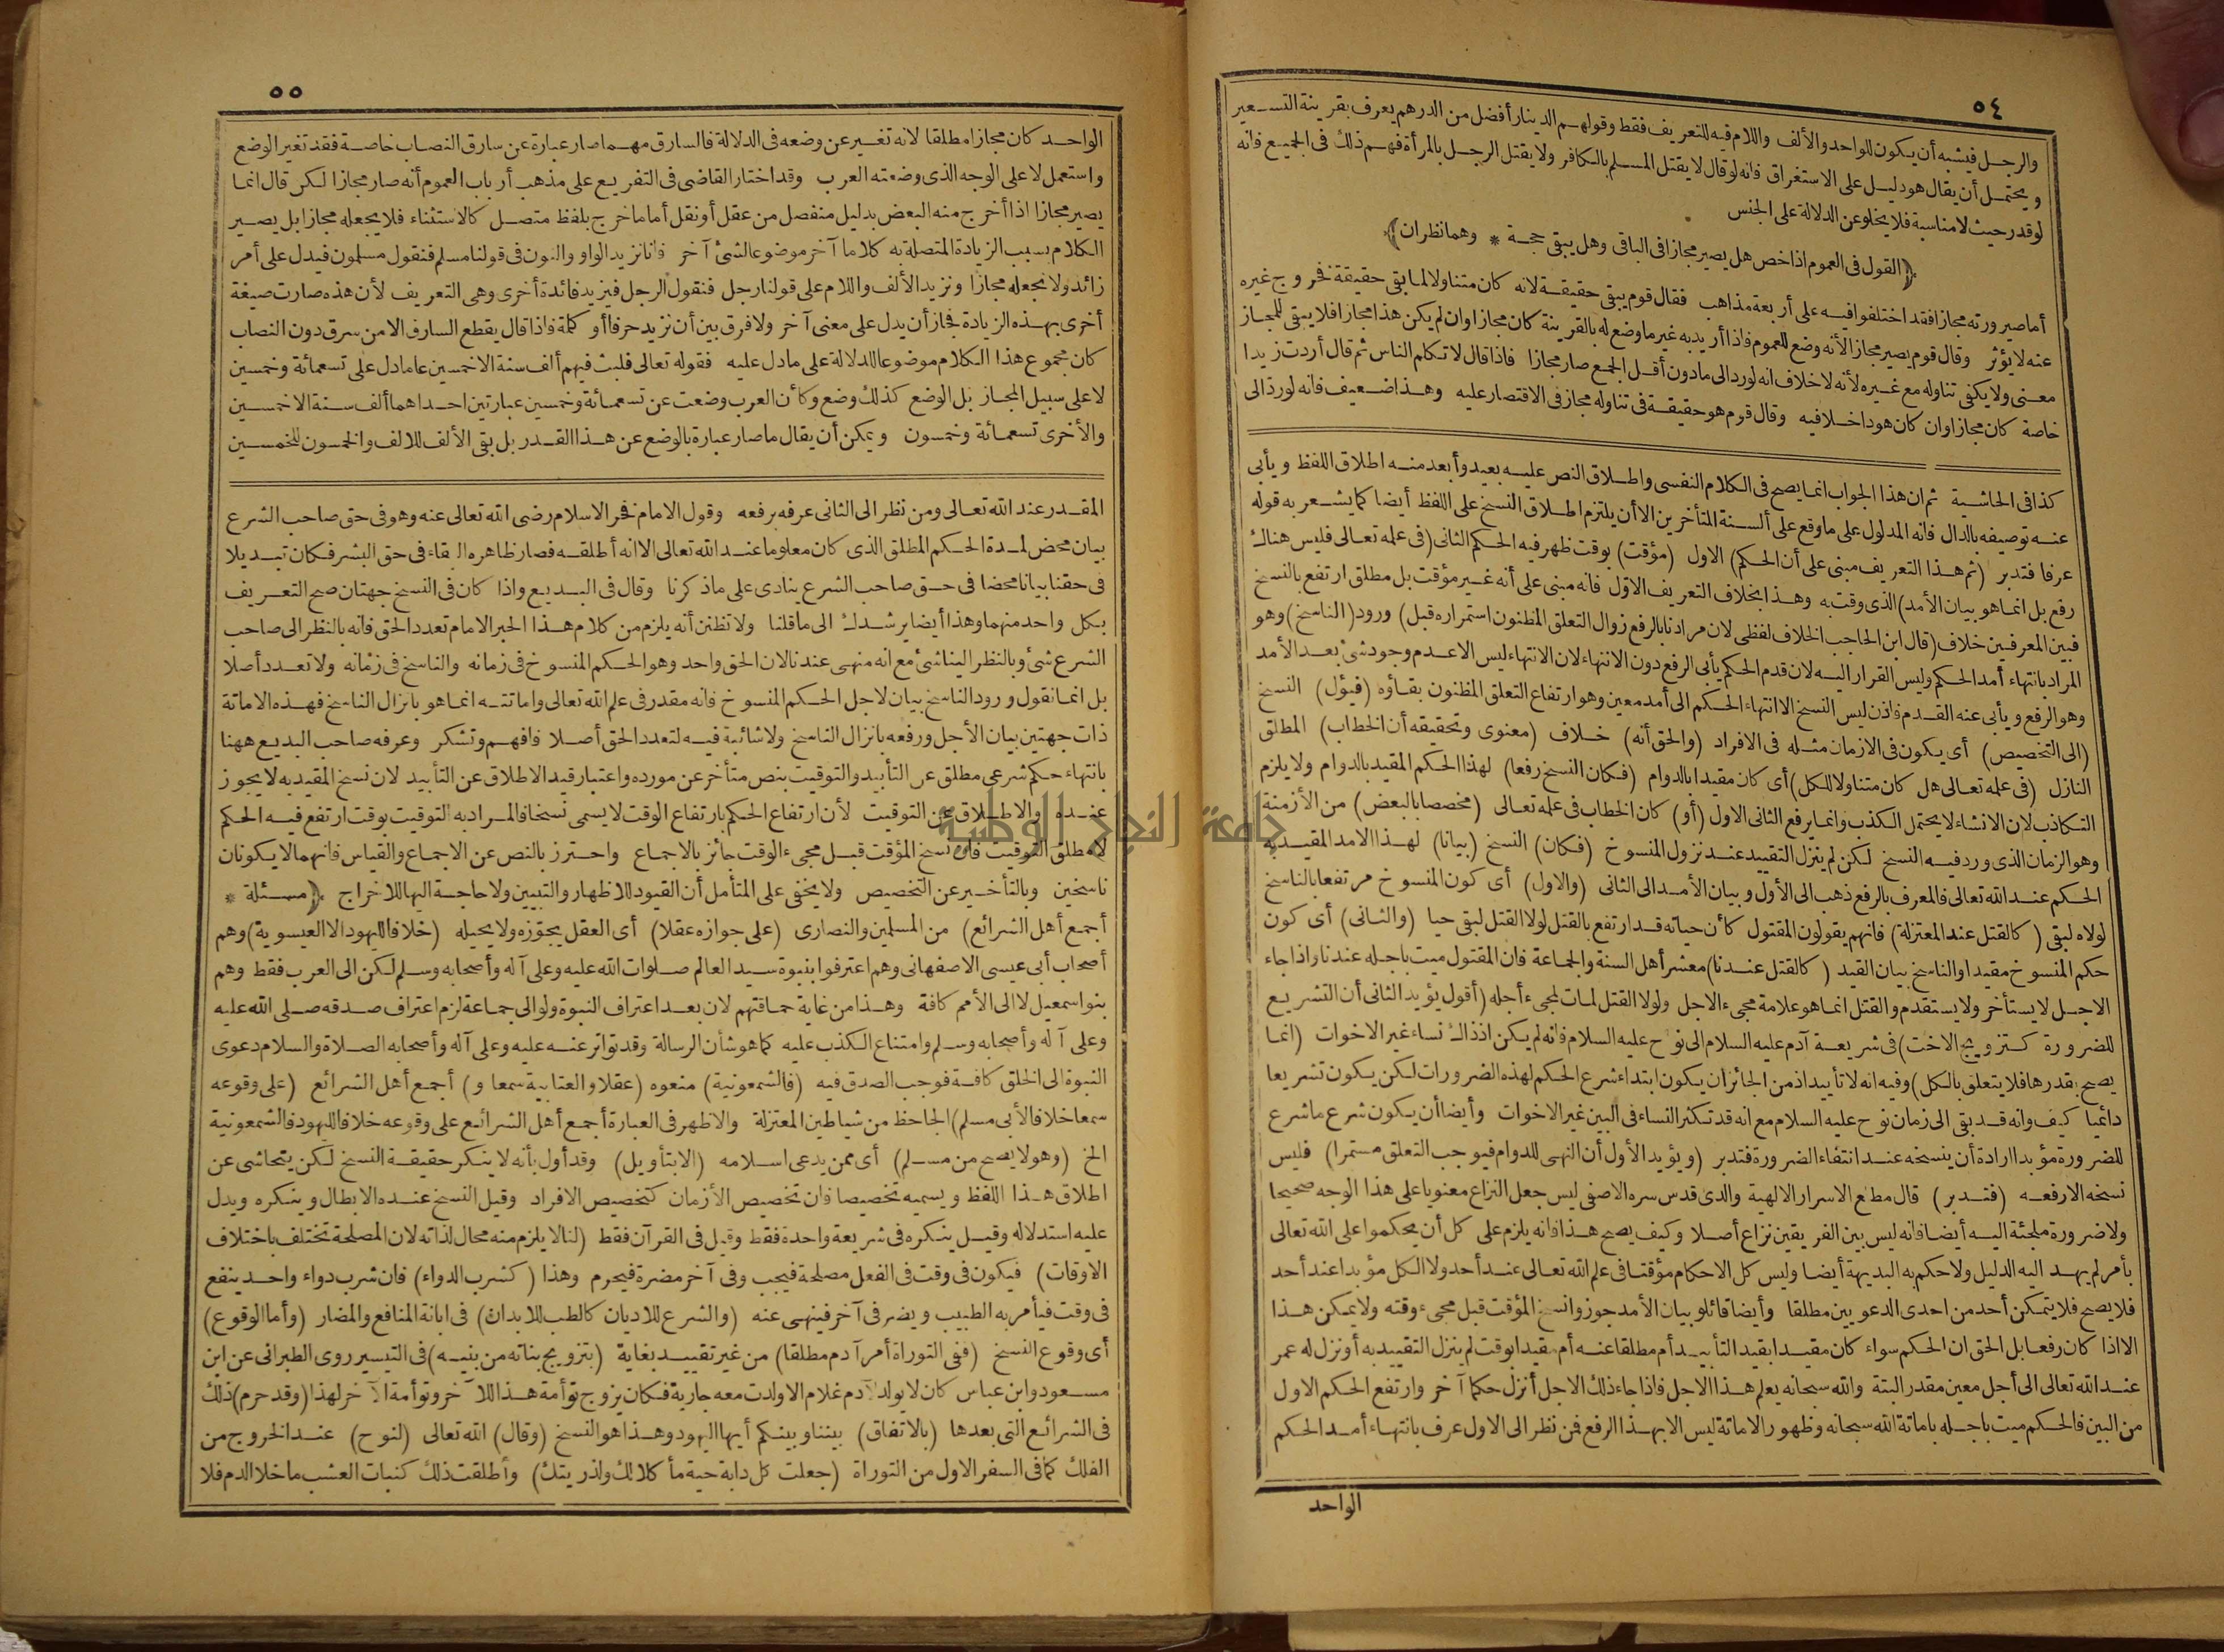 ٥٤
والرجل فيشبه أن يكون للواحد والألف واللام فيه للتعريف فقط وقولهم الدينار أفضل من الدرهم يعرف بقرينة التسعير
ويحتمل أن يقال هو دليل على الاستغراق فانه لو قال لا يقتل المسلم بالكافر ولا يقتل الرجل بالمرأة فهم ذلك فى الجميع فانه
لو قدر حيث لا مناسبة فلا يخلو عن الدلالة على الجنس
﴿القول فى العموم اذا خص هل يصير مجازا فى الباقى وهل يبقى حجة * وهما نظران﴾
أما صيرورته مجازا فقد اختلفوا فيه على أربعة مذاهب فقال قوم يبقى حقيقة لانه كان متناولا لما بقى حقيقة فخروج غيره
عنه لا يؤثر وقال قوم يصير مجازا لأنه وضع للعموم فاذا أريد به غير ما وضع له بالقرينة كان مجازا وان لم يكن هذا مجازا فلا يبقى للمجاز
معنى ولا يكفى تناوله مع غيره لأنه لا خلاف انه لو رد الى ما دون أقل الجمع صار مجازا فاذا قال لا تكلم الناس ثم قال أردت زيدا
خاصة كان مجازا وان كان هو داخلا فيه وقال قوم هو حقيقة فى تناوله مجاز فى الاقتصار عليه وهذا ضعيف فانه لو رد الى
كذا فى الحاشية ثم ان هذا الجواب انما يصح فى الكلام النفسى واطلاق النص عليه بعيد وأبعد منه اطلاق اللفظ ويأبى
عنه توصيفه بالدال فانه المدلول على ما وقع على ألسنة المتأخرين الا أن يلتزم اطلاق النسخ على اللفظ أيضا كما يشعر به قوله
عرفا فتدبر (ثم هذا التعريف مبنى على أن الحكم) الاول (مؤقت) بوقت ظهر فيه الحكم الثانى (فى علمه تعالى فليس هناك
رفع بل انما هو بيان الأمد) الذى وقت به وهذا بخلاف التعريف الاول فانه مبنى على أنه غير مؤقت بل مطلق ارتفع بالنسخ
فبين المعرفين خلاف (قال ابن الحاجب الخلاف لفظى لان مرادنا بالرفع زوال التعلق المظنون استمراره قبل) ورود (الناسخ) وهو
المراد بانتهاء أمد الحكم وليس القرار اليه لان قدم الحكم يأبى الرفع دون الانتهاء لان الانتهاء ليس الا عدم وجود شئ بعد الأمد
وهو الرفع ويأبى عنه القدم فاذن ليس النسخ الا انتهاء الحكم الى أمد معين وهو ارتفاع التعلق المظنون بقاؤه (فيؤل) النسخ
(الى التخصيص) أى يكون فى الازمان مثله فى الافراد (والحق أنه) خلاف (معنوى وتحقيقه أن الخطاب) المطلق
النازل (فى علمه تعالى هل كان متناولا للكل) أى كان مقيدا بالدوام (فكان النسخ رفعا) لهذا الحكم المقيد بالدوام ولا يلزم
التكاذب لان الانشاء لا يحتمل الكذب وانما يرفع الثانى الاول (أو) كان الخطاب فى علمه تعالى (مخصصا بالبعض) من الأزمنة
وهو الزمان الذى ورد فيه النسخ لكن لم ينزل التقييد عند نزول المنسوخ (فكان) النسخ (بيانا) لهذا الامد المقيد به
الحكم عند الله تعالى فالمعرف بالرفع ذهب الى الأول وبيان الأمد الى الثانى (والاول) أى كون المنسوخ مرتفعا بالناسخ
لولاه لبقى (كالقتل عند المعتزلة) فانهم يقولون المقتول كأن حياته قد ارتفع بالقتل لولا القتل لبقى حيا (والثانى) أى كون
حكم المنسوخ مقيدا والناسخ بيان القيد (كالقتل عندنا) معشر أهل السنة والجماعة فان المقتول ميت باجله عندنا واذا جاء
الاجل لا يستأخر ولا يستقدم والقتل انما هو علامة مجىء الاجل ولولا القتل لمات لمجىء أجله (أقول يؤيد الثانى أن التشريع
للضرورة كتزويج الاخت) فى شريعة آدم عليه السلام الى نوح عليه السلام فانه لم يكن اذ ذاك نساء غير الاخوات (انما
يصح بقدرها فلا يتعلق بالكل) وفيه انه لا تأييد اذ من الجائز ان يكون ابتداء شرع الحكم لهذه الضرورات لكن يكون تشريعا
دائميا كيف وانه قد بقى الى زمان نوح عليه السلام مع انه قد تكثر النساء فى البين غير الاخوات وأيضا أن يكون شرع ما شرع
للضرورة مؤبدا ارادة أن ينسخه عند انتفاء الضرورة فتدبر (ويؤيد الأول أن النهى للدوام فيوجب التعلق مستمرا) فليس
نسخه الا رفعه (فتدبر) قال مطلع الاسرار الالهية والدى قدس سره الاصفى ليس جعل النزاع معنويا على هذا الوجه صحيحا
ولا ضرورة ملجئة اليه أيضا فانه ليس بين الفريقين نزاع أصلا وكيف يصح هذا فانه يلزم على كل أن يحكموا على الله تعالى
بأمر لم يهد اليه الدليل ولا حكم به البديهة أيضا وليس كل الاحكام مؤقتا فى علم الله تعالى عند أحد ولا الكل مؤبدا عند أحد
فلا يصح فلا يتمكن أحد من احدى الدعويين مطلقا وأيضا قائلو بيان الأمد جوزوا نسخ المؤقت قبل مجىء وقته ولا يمكن هذا
الا اذا كان رفعا بل الحق ان الحكم سواء كان مقيدا بقيد التأبيد أم مطلقا عنه أم مقيدا بوقت لم ينزل التقييد به أو نزل له عمر
عند الله تعالى الى أجل معين مقدر البتة والله سبحانه يعلم هذا الاجل فاذا جاء ذلك الاجل أنزل حكما آخر وارتفع الحكم الاول
من البين فالحكم ميت باجله باماتة الله سبحانه وظهور الاماتة ليس الا بهذا الرفع فمن نظر الى الاول عرف بانتهاء أمد الحكم
الواحد
٥٥
الواحد كان مجازا مطلقا لانه تغير عن وضعه فى الدلالة فالسارق مهما صار عبارة عن سارق النصاب خاصة فقد تغير الوضع
واستعمل لا على الوجه الذى وضعته العرب وقد اختار القاضى فى التفريع على مذهب أرباب العموم أنه صار مجازا لكن قال انما
يصير مجازا اذا أخرج منه البعض بدليل منفصل من عقل أو نقل أما ما خرج بلفظ متصل كالاستثناء فلا يجعله مجازا بل يصير
الكلام بسبب الزيادة المتصلة به كلاما آخر موضوعا لشئ آخر فانا نزيد الواو والنون فى قولنا مسلم فنقول مسلمون فيدل على أمر
زائد ولا نجعله مجازا ونزيد الألف واللام على قولنا رجل فنقول الرجل فيزيد فائدة أخرى وهى التعريف لأن هذه صارت صيغة
أخرى بهذه الزيادة فجاز أن يدل على معنى آخر ولا فرق بين أن نزيد حرفا أو كلمة فاذا قال يقطع السارق الا من سرق دون النصاب
كان مجموع هذا الكلام موضوعا للدلالة على ما دل عليه فقوله تعالى فلبث فيهم ألف سنة الا خمسين عاما دل على تسعمائة وخمسين
لا على سبيل المجاز بل الوضع كذلك وضع وكأن العرب وضعت عن تسعمائة وخمسين عبارتين احداهما ألف سنة الا خمسين
والأخرى تسعمائة وخمسون ويمكن أن يقال ما صار عبارة بالوضع عن هذا القدر بل بقى الألف للالف والخمسون للخمسين
المقدر عند الله تعالى ومن نظر الى الثانى عرفه برفعه وقول الامام فخر الاسلام رضى الله تعالى عنه وهو فى حق صاحب الشرع
بيان محض لمدة الحكم المطلق الذى كان معلوما عند الله تعالى الا انه أطلقه فصار ظاهره البقاء فى حق البشر فكان تبديلا
فى حقنا بيانا محضا فى حق صاحب الشرع ينادى على ما ذكرنا وقال فى البديع واذا كان فى النسخ جهتان صح التعريف
بكل واحد منهما وهذا أيضا يرشدك الى ما قلنا ولا تظنن أنه يلزم من كلام هذا الحبر الامام تعدد الحق فانه بالنظر الى صاحب
الشرع شئ وبالنظر الينا شئ مع انه منهى عندنا لان الحق واحد وهو الحكم المنسوخ فى زمانه والناسخ فى زمانه ولا تعدد أصلا
بل انما نقول ورود الناسخ بيان لاجل الحكم المنسوخ فانه مقدر فى علم الله تعالى واماتته انما هو بانزال الناسخ فهذه الاماتة
ذات جهتين بيان الأجل ورفعه بانزال الناسخ ولا شائبة فيه لتعدد الحق أصلا فافهم وتشكر وعرفه صاحب البديع ههنا
بانتهاء حكم شرعى مطلق عن التأبيد والتوقيت بنص متأخر عن مورده واعتبار قيد الاطلاق عن التأبيد لان نسخ المقيد به لا يجوز
عنده والاطلاق عن التوقيت لأن ارتفاع الحكم بارتفاع الوقت لا يسمى نسخا فالمراد به التوقيت بوقت ارتفع فيه الحكم
لا مطلق التوقيت فان نسخ المؤقت قبل مجىء الوقت جائز بالاجماع واحترز بالنص عن الاجماع والقياس فانهما لا يكونان
ناسخين وبالتأخير عن التخصيص ولا يخفى على المتأمل أن القيود للاظهار والتبيين ولا حاجة اليها للاخراج ﴿مسئلة *
أجمع أهل الشرائع) من المسلمين والنصارى (على جوازه عقلا) أى العقل يجوزه ولا يحيله (خلافا لليهود الا العيسوية) وهم
أصحاب أبى عيسى الاصفهانى وهم اعترفوا بنبوة سيد العالم صلوات الله عليه وعلى آله وأصحابه وسلم لكن الى العرب فقط وهم
بنو اسمعيل لا الى الأمم كافة وهذا من غاية حماقتهم لان بعد اعتراف النبوة ولو الى جماعة لزم اعتراف صدقه صلى الله عليه
وعلى آله وأصحابه وسلم وامتناع الكذب عليه كما هو شأن الرسالة وقد تواتر عنه عليه وعلى آله وأصحابه الصلاة والسلام دعوى
النبوة الى الخلق كافة فوجب الصدق فيه (فالشمعونية) منعوه (عقلا والعنانية سمعا و) أجمع أهل الشرائع (على وقوعه
سمعا خلافا لأبى مسلم) الجاحظ من شياطين المعتزلة والاظهر فى العبارة أجمع أهل الشرائع على وقوعه خلافا لليهود فالشمعونية
الخ (وهو لا يصح من مسلم) أى ممن يدعى اسلامه (الا بتأويل) وقد أول بأنه لا ينكر حقيقة النسخ لكن يتحاشى عن
اطلاق هذا اللفظ ويسميه تخصيصا فان تخصيص الأزمان كتخصيص الافراد وقيل النسخ عنده الابطال وينكره ويدل
عليه استدلاله وقيل ينكره فى شريعة واحدة فقط وقيل فى القرآن فقط (لنا لا يلزم منه محال لذاته لان المصلحة تختلف باختلاف
الاوقات) فيكون فى وقت فى الفعل مصلحة فيجب وفى آخر مضرة فيحرم وهذا (كشرب الدواء) فان شرب دواء واحد ينفع
فى وقت فيأمر به الطبيب ويضر فى آخر فينهى عنه (والشرع للاديان كالطب للابدان) فى ابانة المنافع والمضار (وأما الوقوع)
أى وقوع النسخ (ففى التوراة أمر آدم مطلقا) من غير تقييد بغاية (بتزويج بناته من بنيه) فى التيسير روى الطبرانى عن ابن
مسعود وابن عباس كان لا يولد لآدم غلام الا ولدت معه جارية فكان يزوج توأمة هذا للآخر وتوأمة الآخر لهذا (وقد حرم) ذلك
فى الشرائع التى بعدها (بالاتفاق) بيننا وبينكم أيها اليهود وهذا هو النسخ (وقال) الله تعالى (لنوح) عند الخروج من
الفلك كما فى السفر الاول من التوراة (جعلت كل دابة حية مأكلا لك ولذريتك) وأطلقت ذلك كنبات العشب ما خلا الدم فلا
جامعة النجاح الوطنية